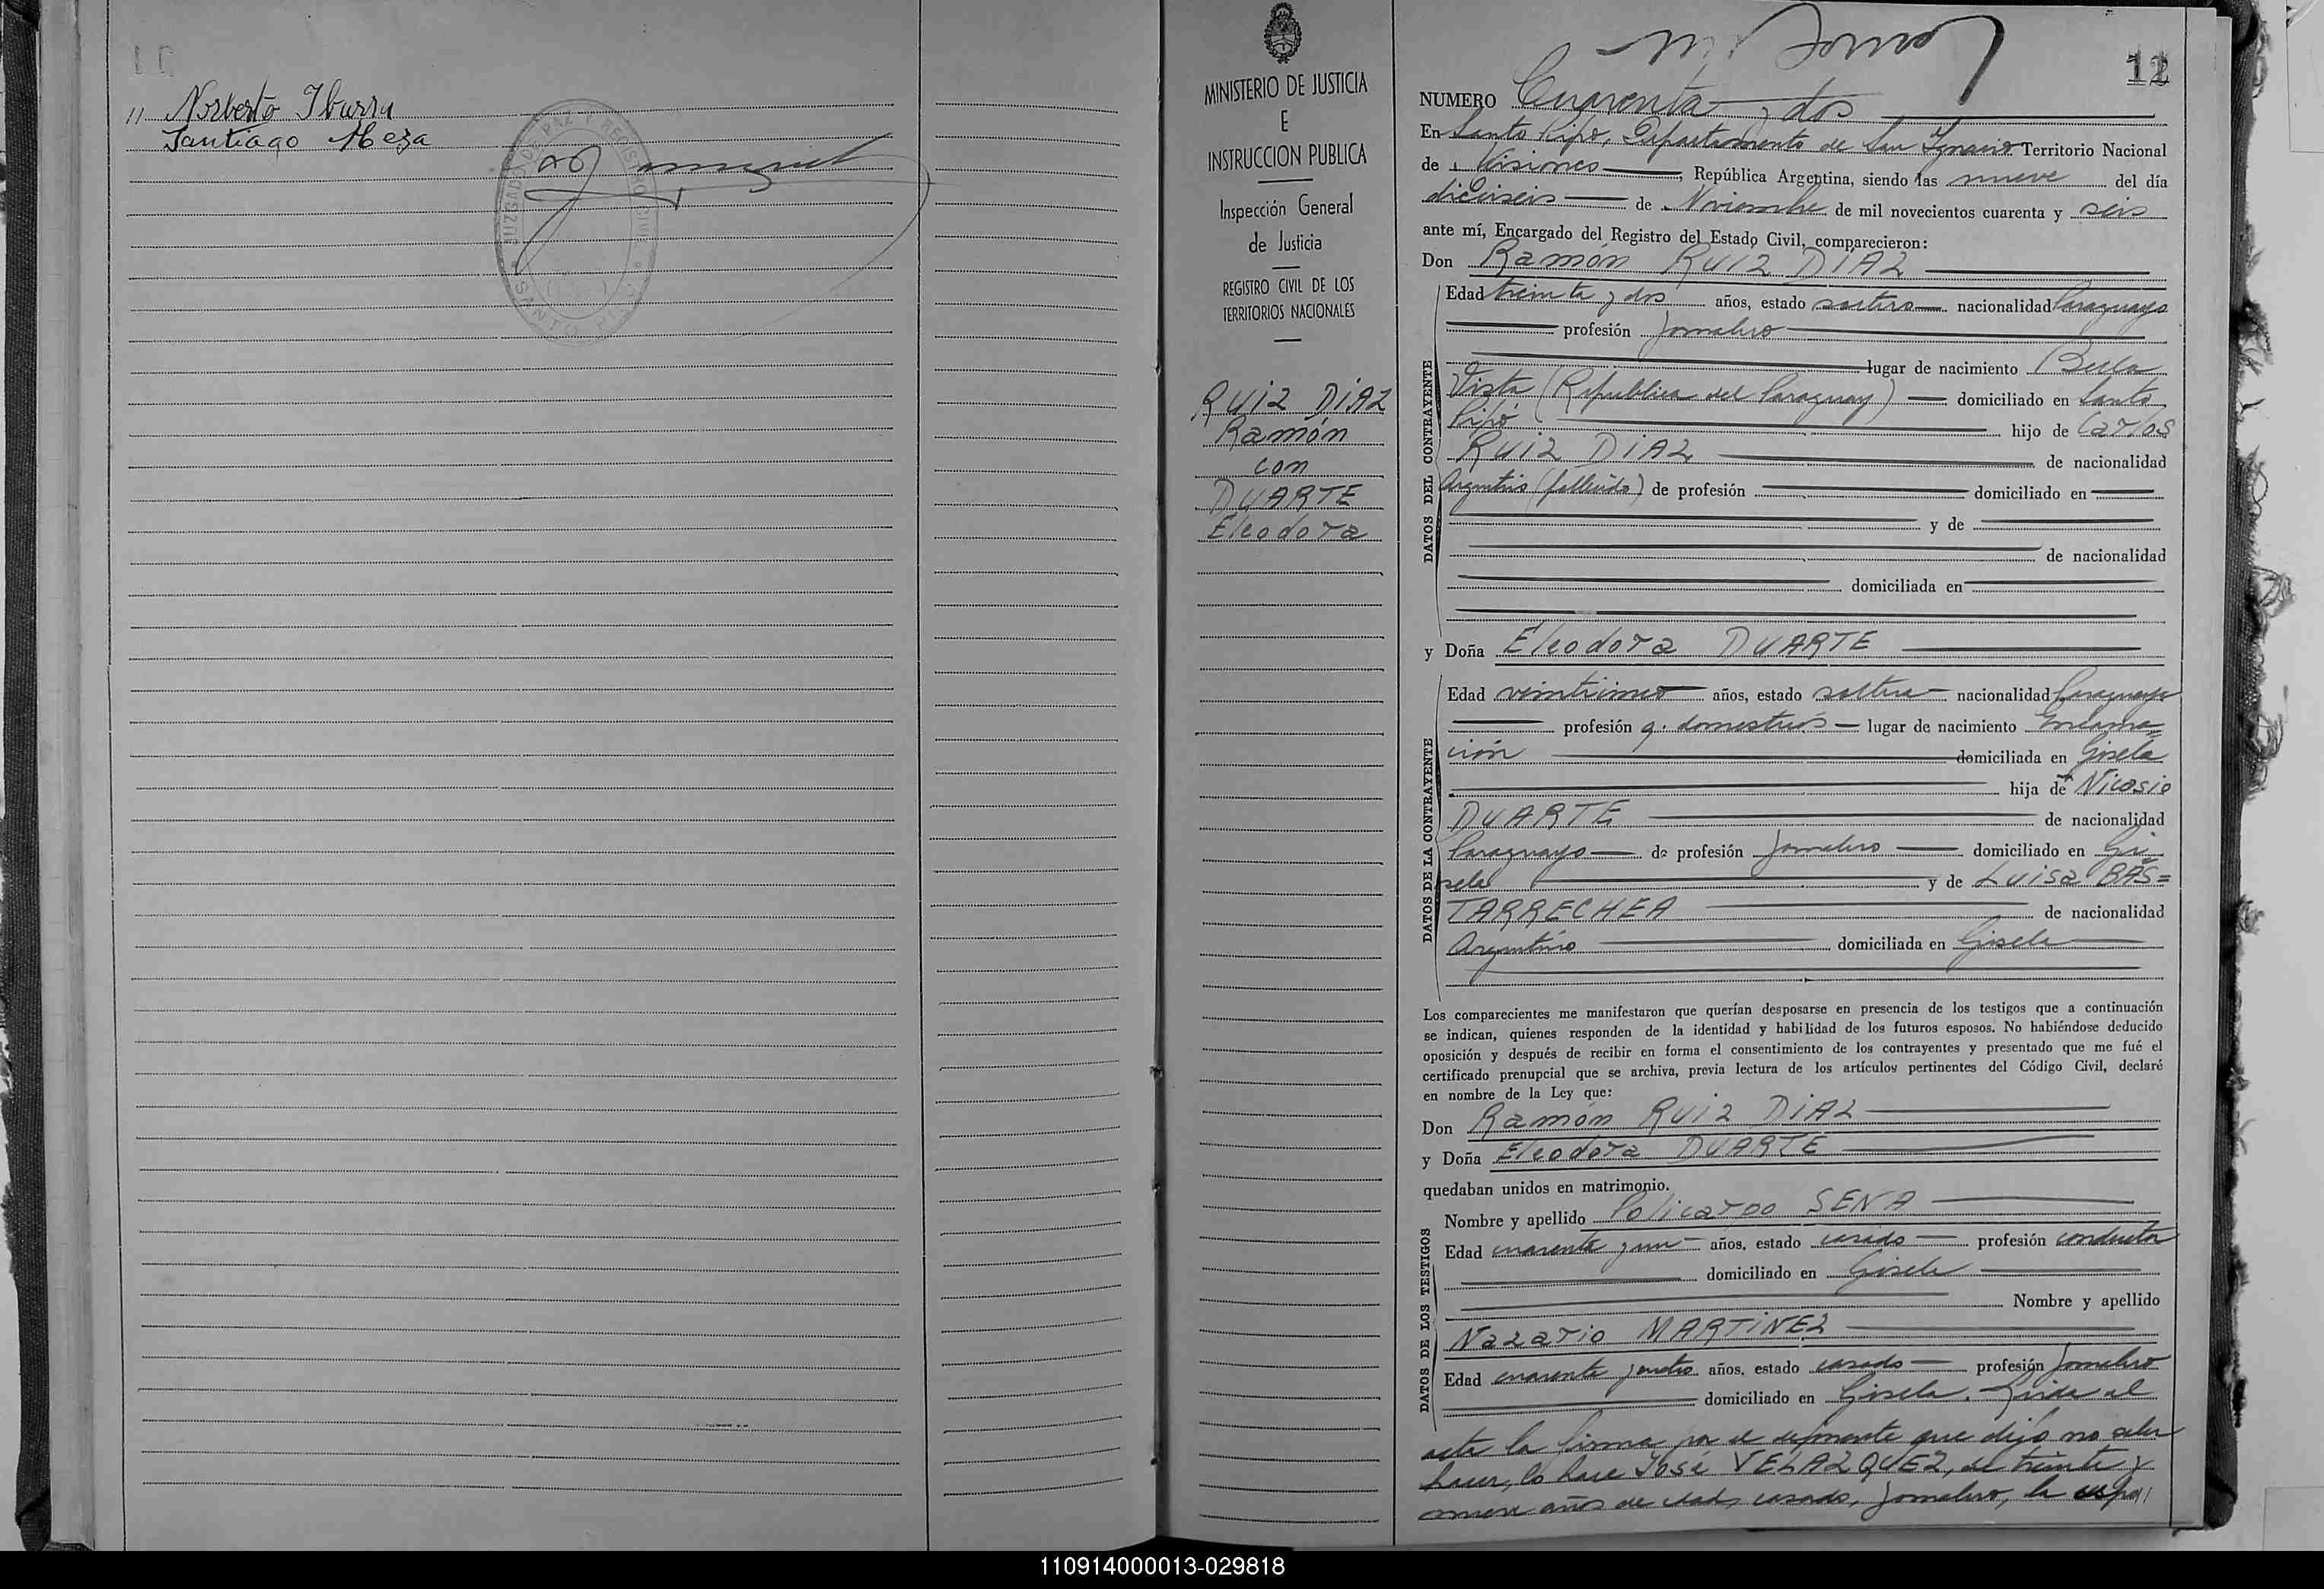 " Norberto Ibarra
Santiago Meza
JUZGADO DE PAZ Y REGISTRO CIVIL
SANTO PIPO
MINISTERIO DE JUSTICIA
E
INSTRUCCION PUBLICA
Inspección General
de Justicia
REGISTRO CIVIL DE LOS
TERRITORIOS NACIONALES
RUIZ DIAZ
Ramón
con
DUARTE
Eleodora
12
NUMERO Cuarenta y dos
En Santo Pipo, Departamento de San Ignacio Territorio Nacional
de Misiones, República Argentina, siendo las nueve del día
dieciseis de Noviembre de mil novecientos cuarenta y seis
ante mí, Encargado del Registro del Estado Civil, comparecieron:
Don Ramón RUIZ DIAZ
Edad treinta y dos años, estado soltero nacionalidad Paraguayo
profesión Jornalero
lugar de nacimiento Bella
Vista (Republica del Paraguay) domiciliado en Santo
Pipó hijo de Carlos
RUIZ DIAZ de nacionalidad
Argentino (fallecido) de profesión domiciliado en
y de
de nacionalidad
domiciliada en
y Doña Eleodora DUARTE
Edad veinticinco años, estado soltera nacionalidad Paraguaya
profesión q. domesticos lugar de nacimiento Encarna=
ción domiciliada en Gisela
hija de Nicasio
DUARTE de nacionalidad
Paraguayo de profesión Jornalero domiciliado en Gi=
sela y de Luisa BAS=
TARRECHEA de nacionalidad
Argentina domiciliada en Gisela
DATOS DEL CONTRAYENTE
DATOS DE LA CONTRAYENTE
Los comparecientes me manifestaron que querían desposarse en presencia de los testigos que a continuación
se indican, quienes responden de la identidad y habilidad de los futuros esposos. No habiéndose deducido
oposición y después de recibir en forma el consentimiento de los contrayentes y presentado que me fué el
certificado prenupcial que se archiva, previa lectura de los artículos pertinentes del Código Civil, declaré
en nombre de la Ley que:
Don Ramón RUIZ DIAZ
y Doña Eleodora DUARTE
quedaban unidos en matrimonio.
Nombre y apellido Policarpo SENA
Edad cuarenta y un años, estado casado profesión conductor
domiciliado en Gisela
Nombre y apellido
Nazario MARTINEZ
Edad cuarenta y cuatro años, estado casado profesión Jornalero
domiciliado en Gisela. Leida el
DATOS DE LOS TESTIGOS
acta la firma por el que dijo no saber
hacer, lo hace José VELAZQUEZ, de treinta y
nueve años de edad, casado, jornalero, la
110914000013-029818